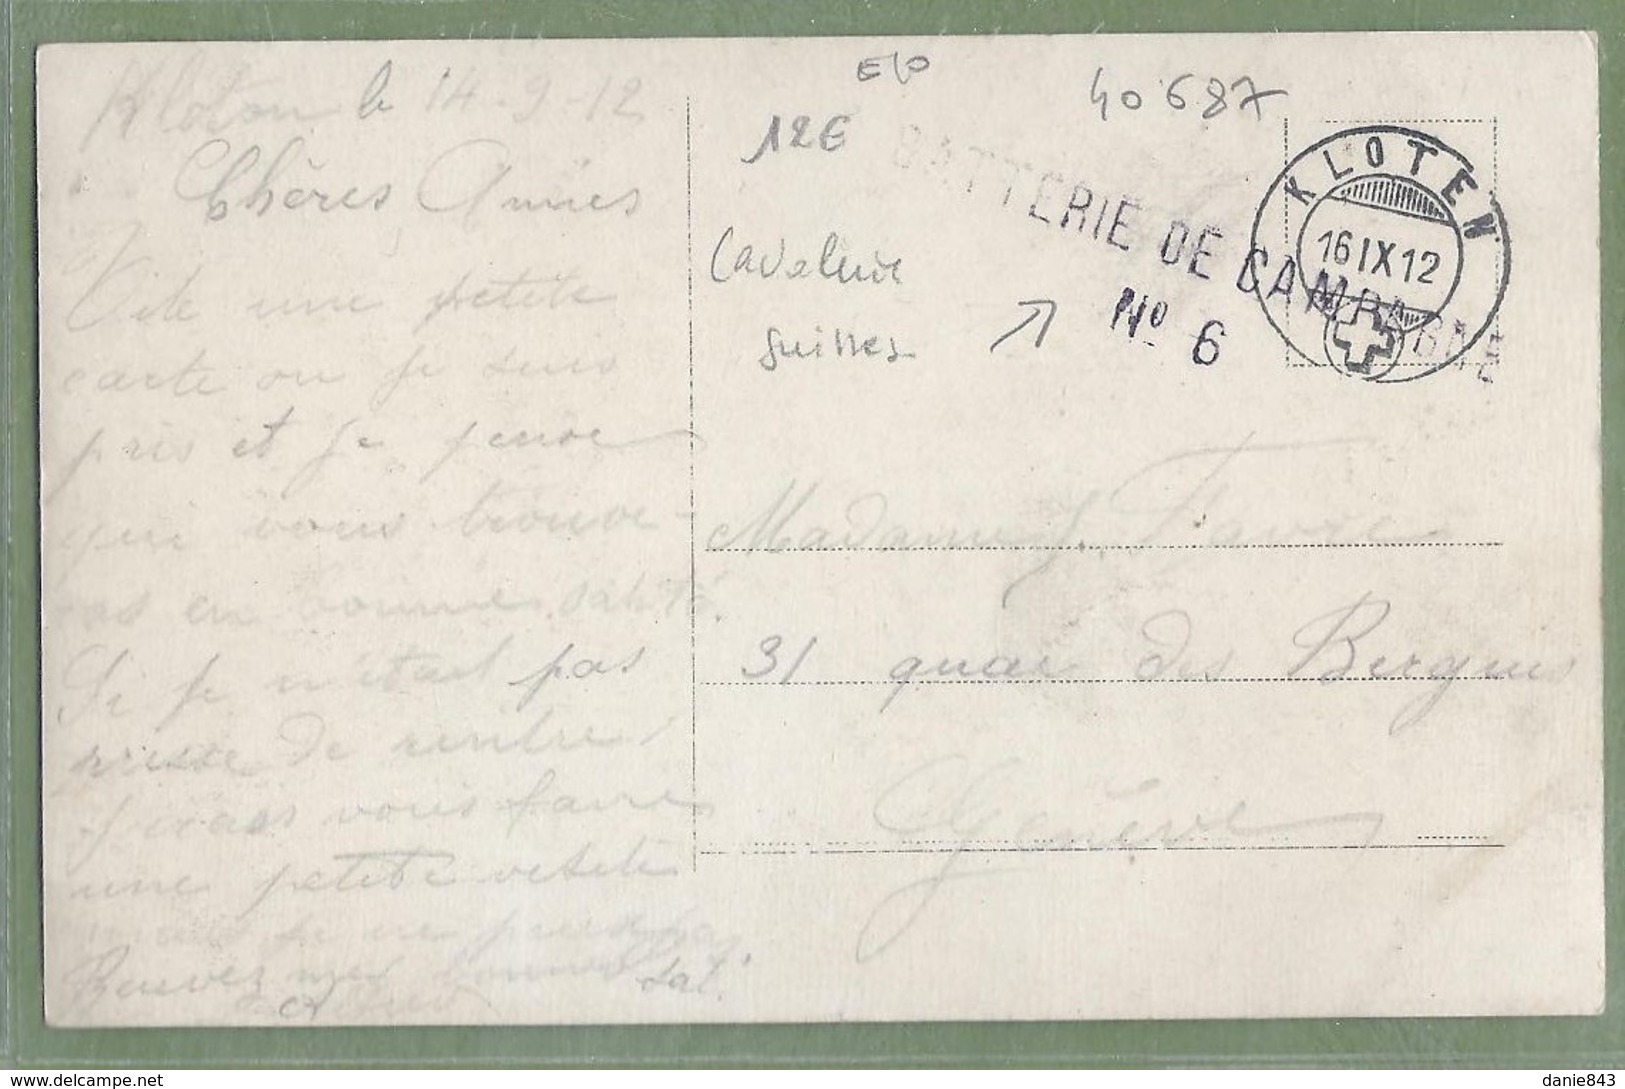 Kloten le 14-9-12
Chères Amies
Vite une petite
carte ou je suis
pris et je pense
qui vous trouve-
ras en bonne santé.
Si je n'était pas
presse de rentré
J'irais vous faire
une petite visite
mais je ne peux pas.
Recevez mes bonnes
Sal.
Elo
40687
12€
Cavalerie
suisse
BATTERIE DE CAMPAGNE
No 6
KLOTEN
16 IX 12
Madame J. Favre
31 quai des Bergues
Genève
danie843